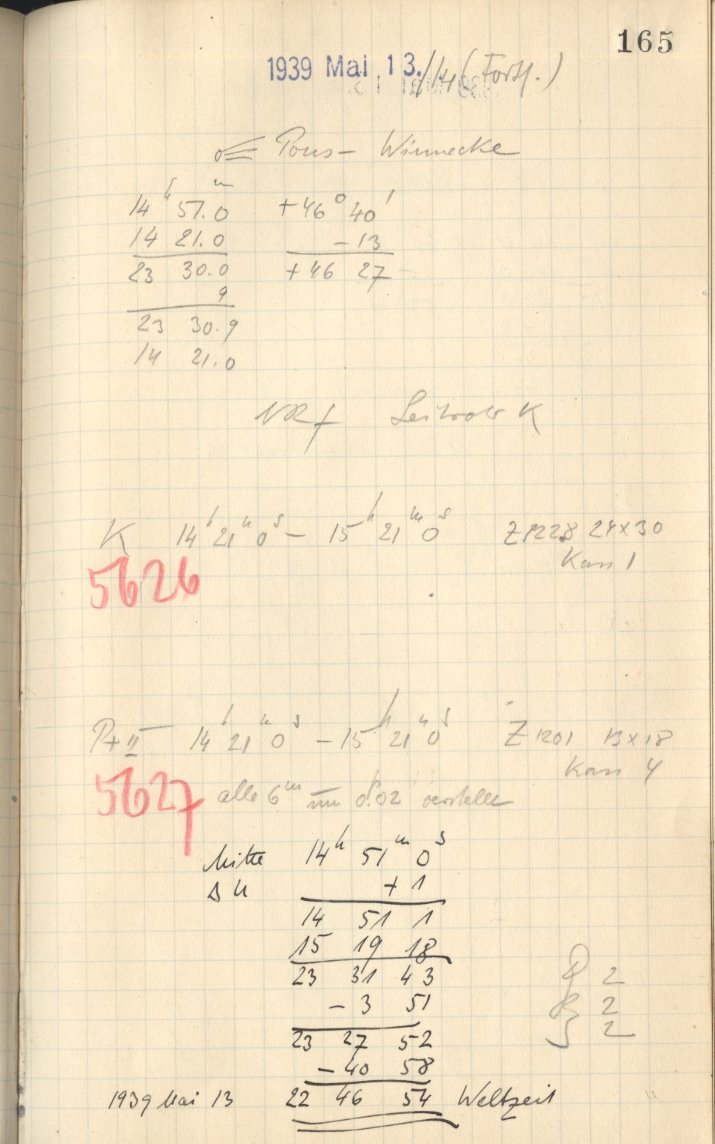 165
1939 Mai 13./14 (Forts.)
☄ Pons-Winnecke
14ʰ 57.0ᵐ +46° 40'
14 21.0 -13
23 30.0 +46 27
9
23 30.9
14 21.0
Leitrohr K
K 14ʰ 21ᵐ 0ˢ - 15ʰ 21ᵐ 0ˢ Z1228 24x30
Kass 1
5626
14ʰ 21ᵐ 0ˢ - 15ʰ 21ᵐ 0ˢ Z 1201 13x18
Kass 4
5627 alle 6ᵐ um 0.02 verstellt
Mitte 14ʰ 51ᵐ 0ˢ
Δu +1
14 51 1
15 19 18
23 31 43
-3 51
23 27 52
-40 58
1939 Mai 13 22 46 54 Weltzeit
2
2
2